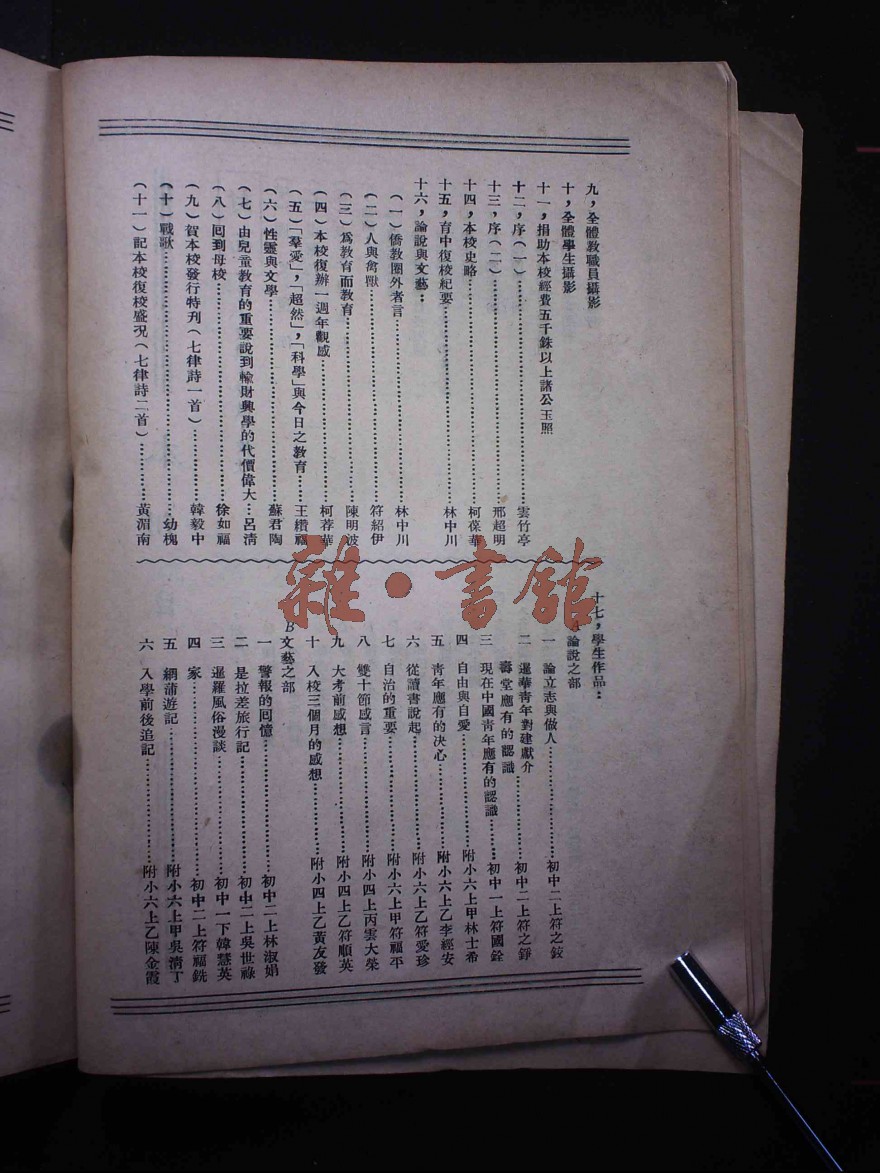 九，全體教職員攝影
十，全體學生攝影
十一，捐助本校經費五千銖以上諸公玉照
十二，序（一）…………雲竹亭
十三，序（二）…………邢超明
十四，本校史略…………柯葆華
十五，育中復校紀要…………林中川
十六，論說與文藝：
（一）僑教圈外者言…………林中川
（二）人與禽獸…………符紹伊
（三）爲教育而教育…………陳明波
（四）本校復辦一週年觀感…………柯荐華
（五）「羣愛」，「超然」，「科學」與今日之教育……王纘福
（六）性靈與文學…………蘇君陶
（七）由兒童教育的重要說到輸財興學的代價偉大…呂淸
（八）囘到母校…………徐如福
（九）賀本校發行特刊（七律詩一首）…………韓毅中
（十）戰歌…………幼槐
（十一）記本校復校盛况（七律詩二首）…………黃湄南
十七，學生作品：
A論說之部
一　論立志與做人…………初中二上符之鉸
二　暹華靑年對建獻介
壽堂應有的認識…………初中二上符之錚
三　現在中國靑年應有的認識…………初中一上符國銓
四　自由與自愛…………附小六上甲林士希
五　靑年應有的决心…………附小六上乙李經安
六　從讀書說起…………附小六上乙符愛珍
七　自治的重要…………附小六上甲符福平
八　雙十節感言…………附小四上丙雲大榮
九　大考前感想…………附小四上乙符順英
十　入校三個月的感想…………附小四上乙黃友發
B文藝之部
一　警報的囘憶…………初中二上林淑娟
二　是拉差旅行記…………初中二上吳世祿
三　暹羅風俗漫談…………初中一下韓慧英
四　家…………初中二上符福銑
五　網蒲遊記…………附小六上甲吳淸丁
六　入學前後追記…………附小六上乙陳金霞
雜·書館